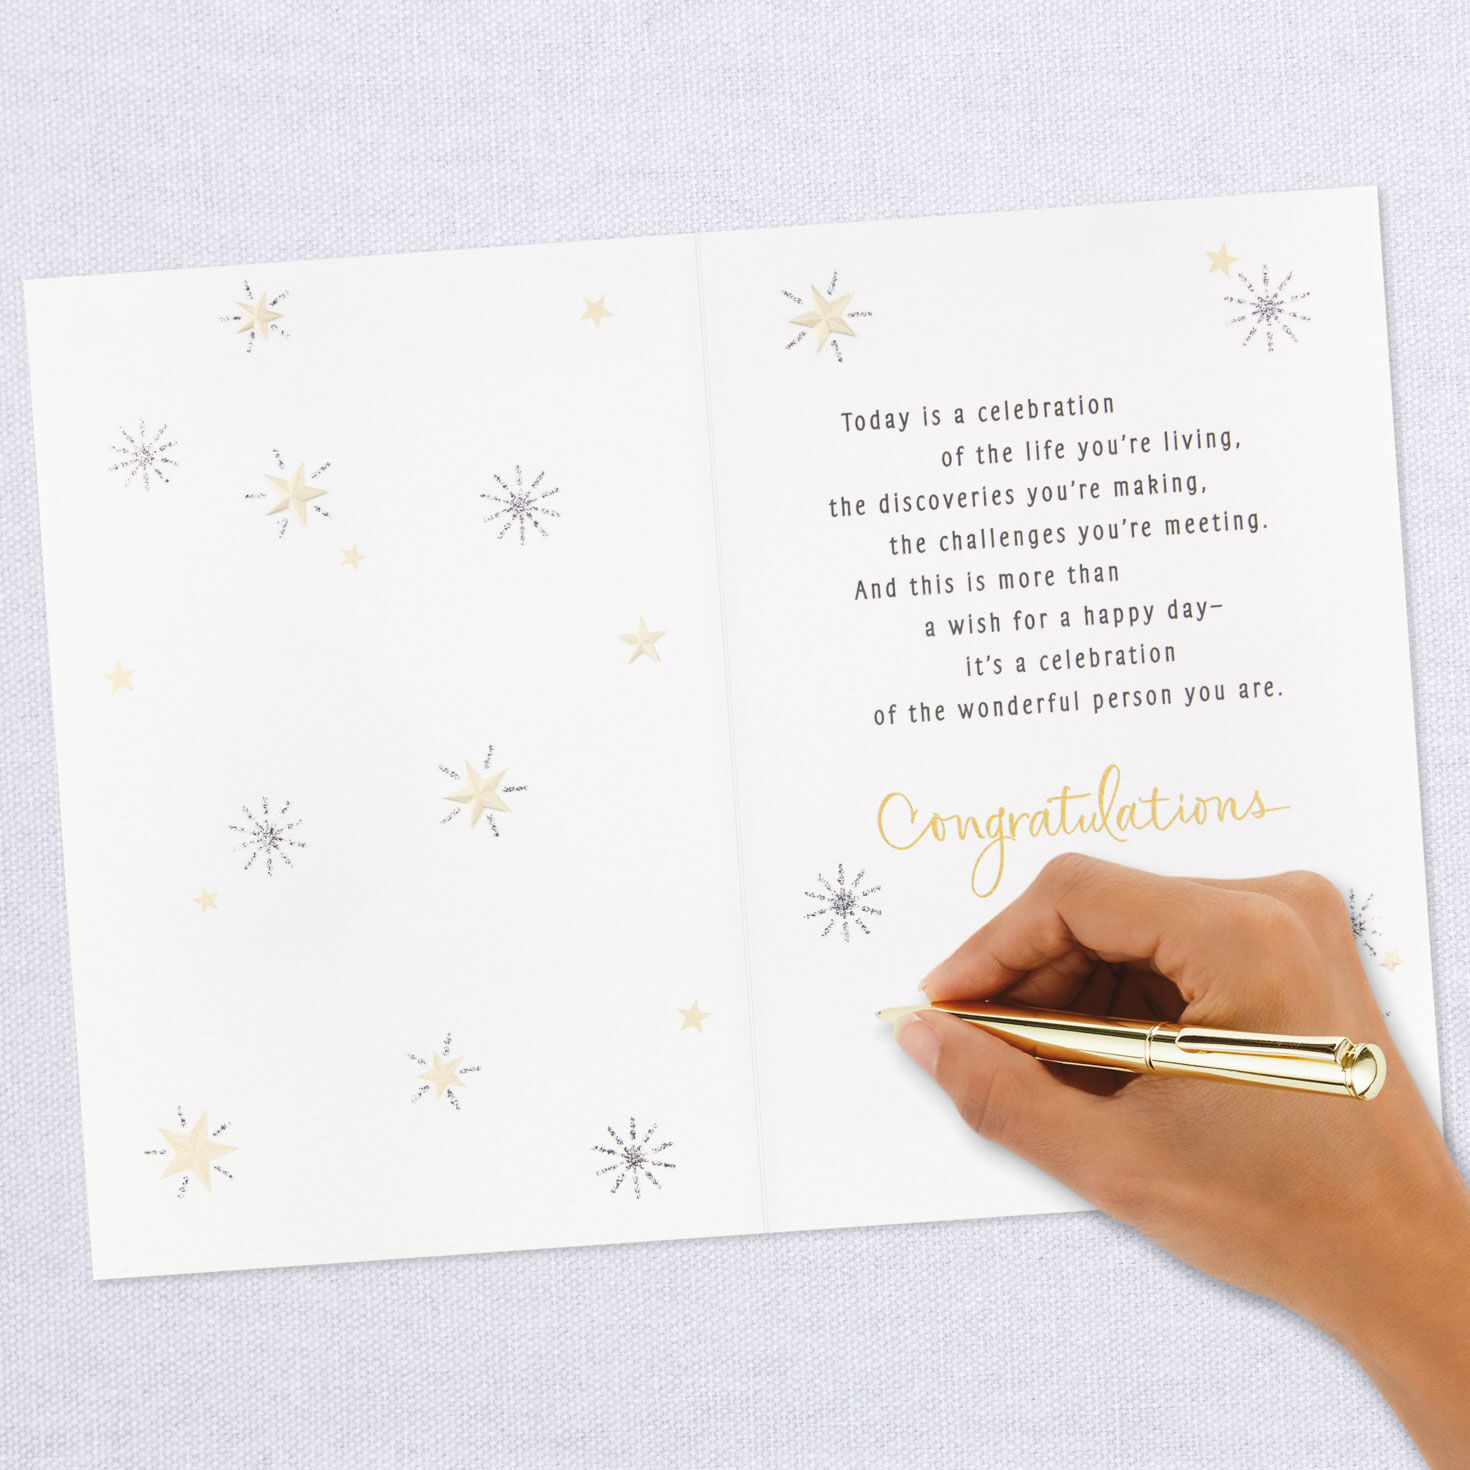 Today is a celebration
of the life you're living,
the discoveries you're making,
the challenges you're meeting.
And this is more than
a wish for a happy day–
it's a celebration
of the wonderful person you are.
Congratulations